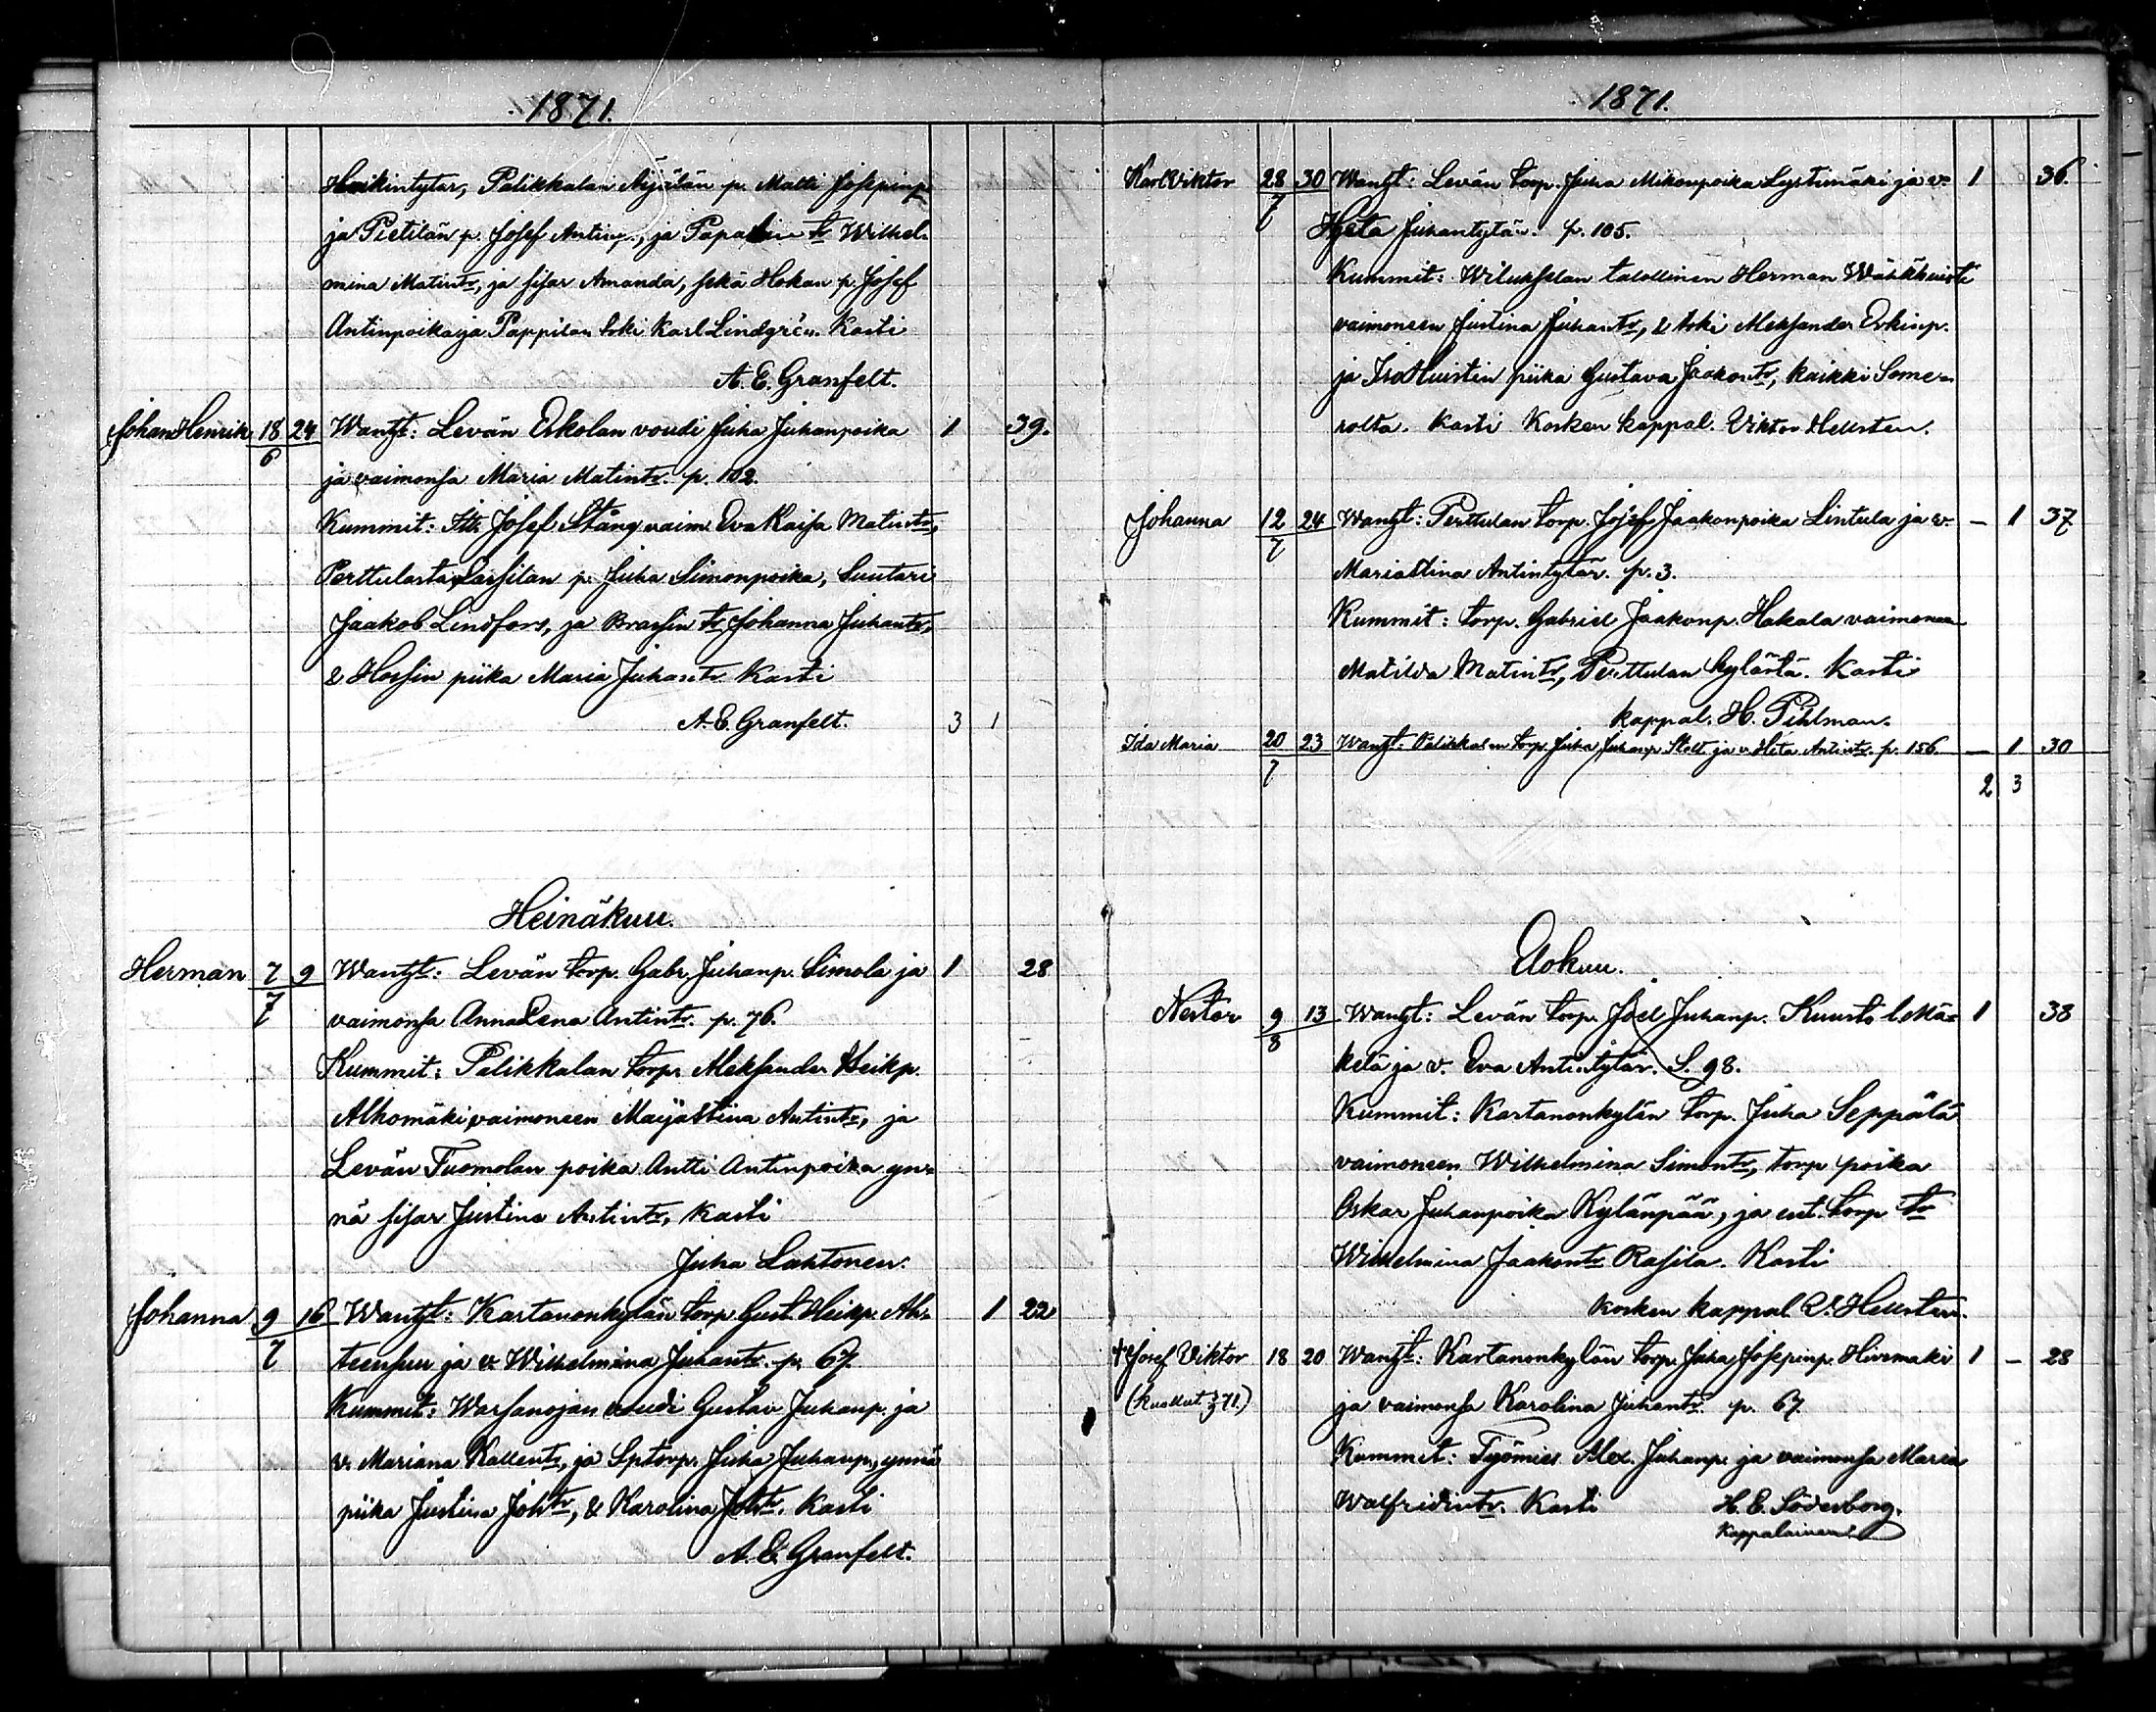 1871.
Heikintytar, Palikkalan Äijälän p. Matti Josepinp
ja Pietilän p. Josef Antinp., ja Wilhel-
mina Matintr, ja sisar Amanda, sekä Hokan p. Josef
Antinpoika ja Pappilan Karl Lindgrén. Kasti
A. E. Granfelt.
Johan Henrik 18/6 24 Wanht: Levän Erkolan voudi Juha Juhanpoika 1 39.
ja vaimonsa Maria Matintr. p. 102.
Kummit: Josef Stång vaim. Eva Kaisa Matintr,
Perttulasta, Lassilan p. Juha Simonpoika, Suutari
Jaakob Lindfors, ja Brassin tr Johanna Juhantr,
& Hossin piika Maria Juhantr. Kasti
A. E. Granfelt. 3 1
Heinäkuu.
Herman 7/7 9 Wanht: Levän torp. Gabr. Juhanp. Simola ja 1 28
vaimonsa Anna Lena Antintr. p. 76.
Kummit: Palikkalan torp. Aleksander Heikp.
Alhomäki vaimoneen Maijastiina Antintr, ja
Levän Tuomolan poika Antti Antinpoika yn-
nä sisar Justina Antintr, Kasti
Juha Lahtonen.
Johanna 9/7 16 Wanht: Kartanonkylän torp. Gust. Heikp. Ah- 1 22
teensuu ja v. Wilhelmina Juhantr. p. 67.
Kummit: Warsanojan voudi Gustav Juhanp. ja
v. Mariana Kallentr, ja Sptorp. Juha Juhanp., ynnä
piika Justina Johtr, & Karolina Johtr. Kasti
A. E. Granfelt.
1871.
Karl Viktor 28/7 30 Wanht: Levän torp. Juha Mikonpoika Lystimäki ja v. 1 36.
Heta Juhantytär. p. 105.
Kummit: Wilukselan talollinen Herman Wähähuisti
vaimoneen Justina Juhantr, & Aleksander Erkinp.
ja Iso Huistin piika Gustava Jaakontr, kaikki Some-
rolta. Kasti Kosken kappal. Viktor Hellsten.
Johanna 12/7 24 Wanht: Perttulan torp. Josef Jaakonpoika Lintula ja v. — 1 37
Mariastina Antintytär. p. 3.
Kummit: torp. Gabriel Jaakonp. Hakala vaimoneen
Matilda Matintr, Perttulan kylästä. Kasti
kappal. H. Pihlman.
Ida Maria 20/7 23 Wanht: Palikkalan torp. Juha Juhanp. Stolt ja v. Heta Antintr. p. 156. — 1 30
2 3
Elokuu.
Nestor 9/8 13 Wanht: Levän torp. Joel Juhanp. Kuusto l. Mä- 1 38
kelä ja v. Eva Antintytär. S. 98.
Kummit: Kartanonkylän torp. Juha Seppälä
vaimoneen Wilhelmina Simontr, torp. poika
Oskar Juhanpoika Kylänpää, ja ent. torp. tr
Wilhelmina Jaakontr Rasila. Kasti
Kosken kappal. V. Hellsten.
† Josef Viktor 18 20 Wanht: Kartanonkylän torp. Juha Josepinp. Hiirmäki 1 — 28
(kuollut 71.) ja vaimonsa Karolina Juhantr. p. 67.
Kummit: Työmies Alex. Juhanp. ja vaimonsa Maria
Walfridintr. Kasti H. E. Söderborg.
Kappalainen